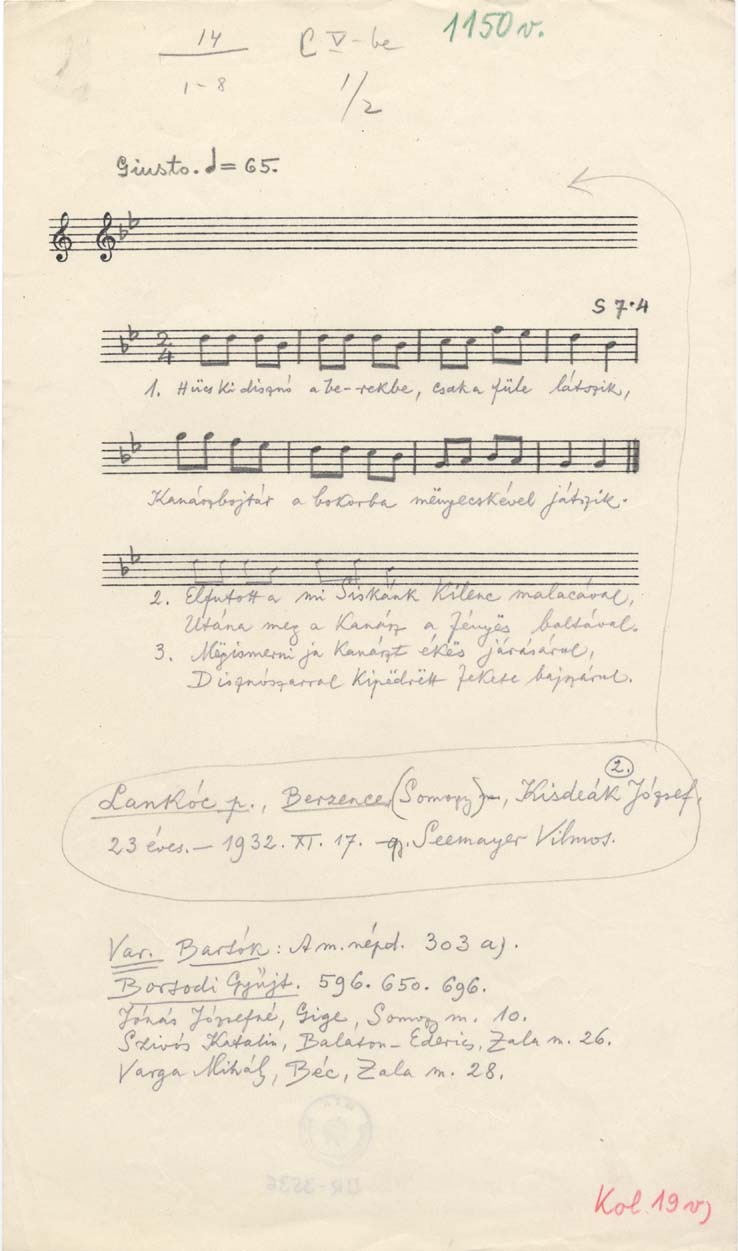 1150 v.
14
C V-be
1-8
1/2
Giusto. = 65.
S 7·4
2
4
1. Hücs ki disznó a be-rekbe, csak a füle látszik,
Kanászbojtár a bokorba mënyecskével játszik.
2. Elfutott a mi Siskánk kilenc malacával,
Utána meg a Kanász a fényës baltával.
3. Mëgismerni ja Kanászt ékës járásárul,
Disznószarral kipëdrëtt fekete bajszárul.
2.
Lankóc p., Berzence (Somogy), Kisdeák József,
23 éves. – 1932. XI. 17. gy. Seemayer Vilmos.
Var. Bartók: A m. népd. 303 a).
Borsodi Gyűjt. 596. 650. 696.
Jónás Józsefné, Gige, Somogy m. 10.
Szivós Katalin, Balaton-Ederics, Zala m. 26.
Varga Mihály, Béc, Zala m. 28.
BR-3536
Kol. 19 v)